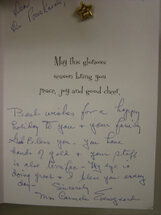 Dear
Dr.
May this glorious
season bring you
peace, joy and good cheer.
Best wishes for a happy
holiday to you + your family
God Bless you. You have
hands of gold + your staff
is also terrific. My eye is
doing great + I bless you every
day. Sincerely
Mrs Carmela